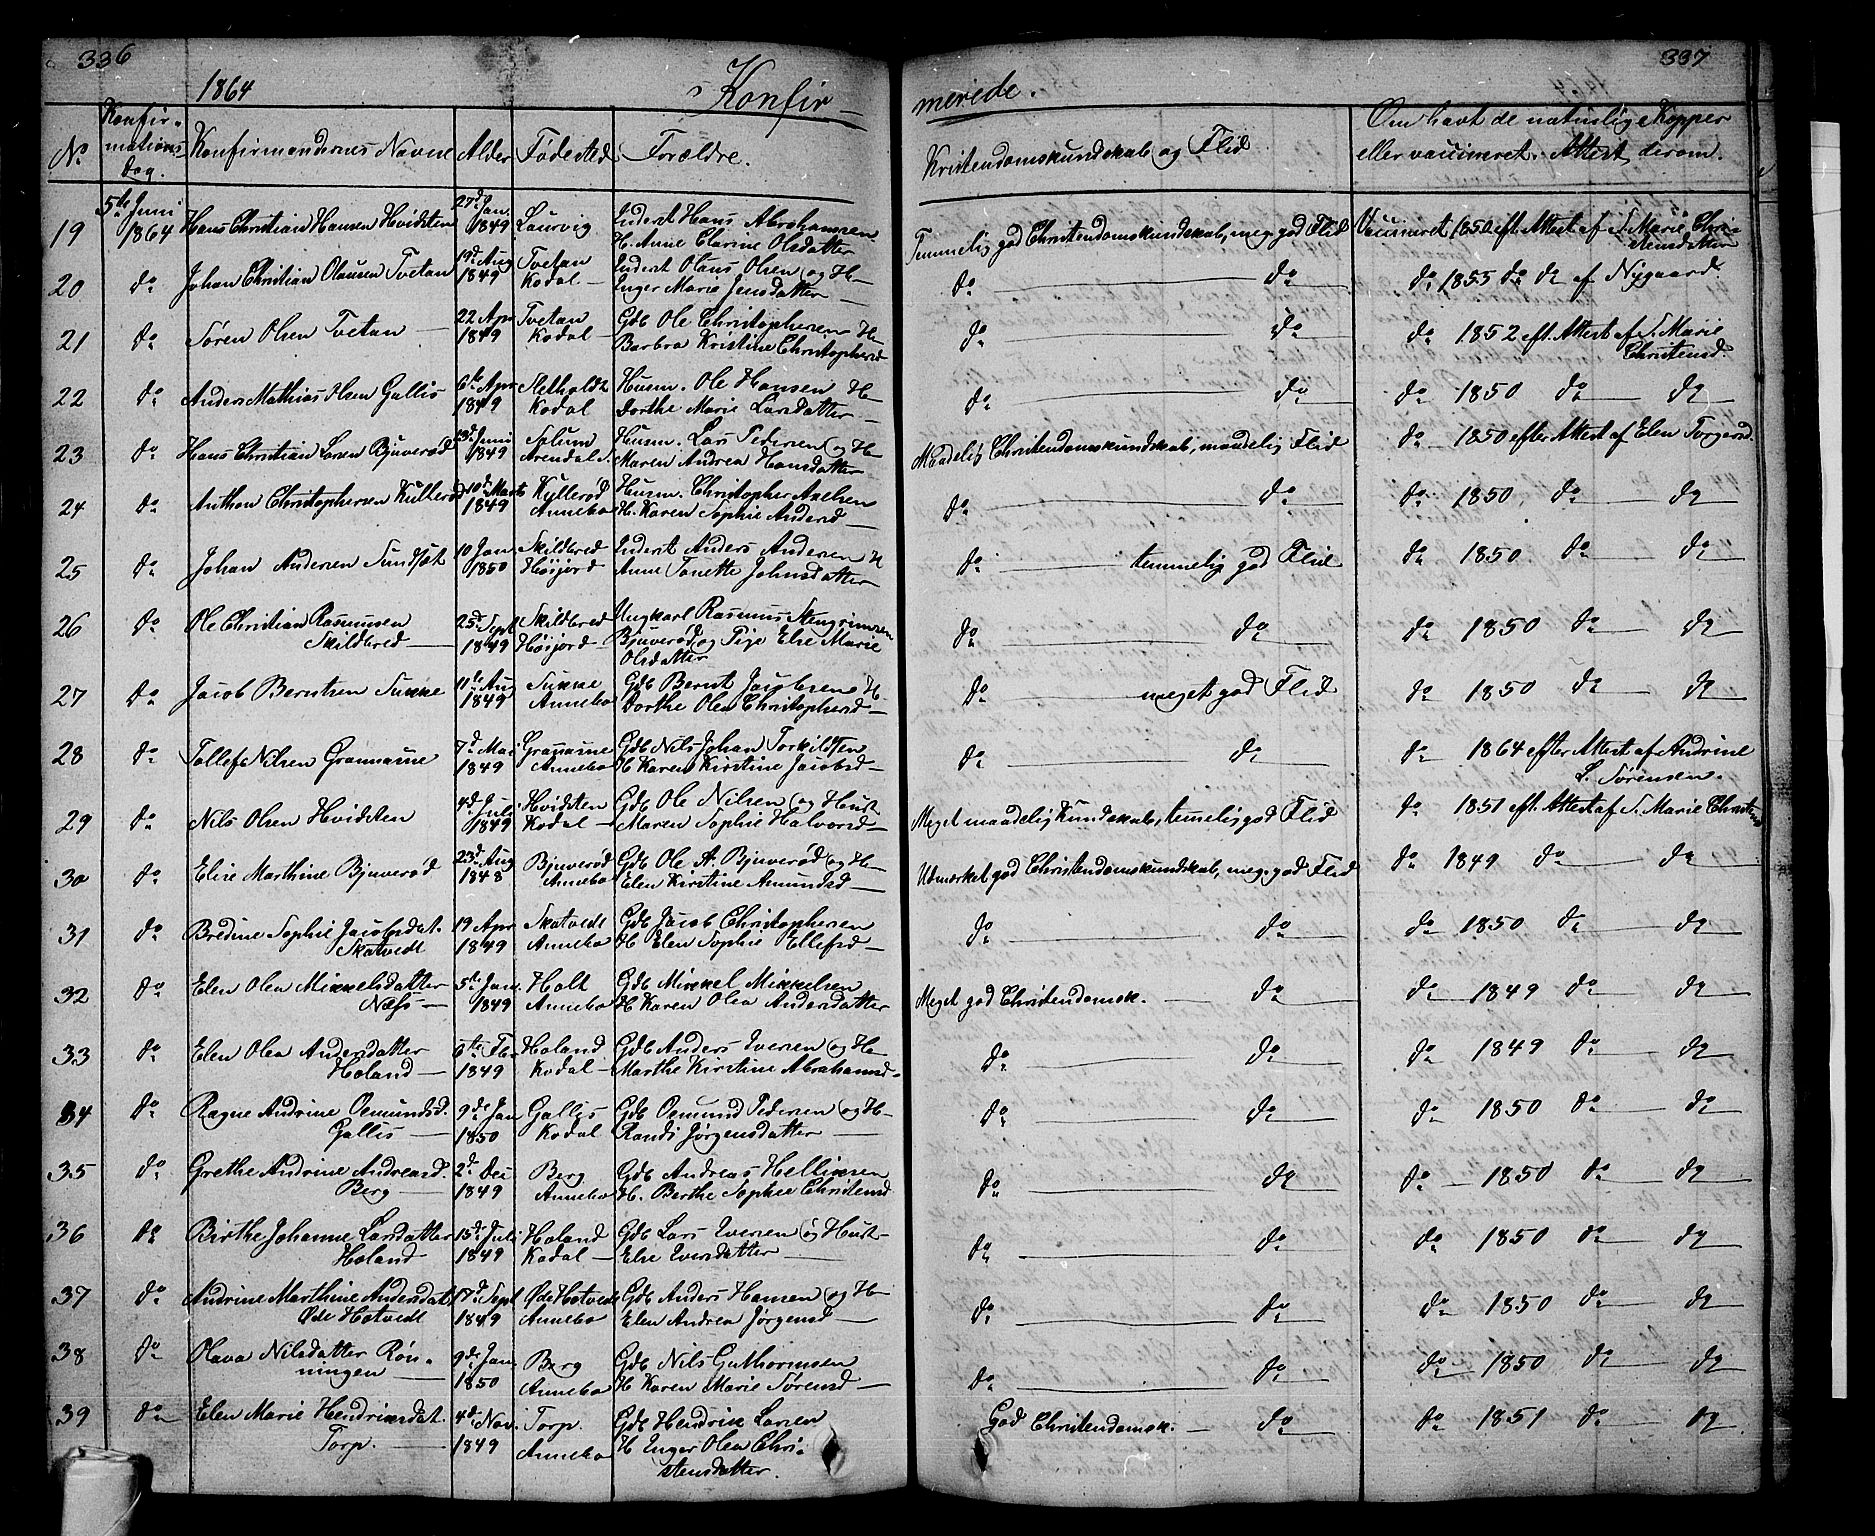 336
337
1864
Konfir-
merede.
No
Konfir-
mations-
dag.
Konfirmandernes Navne
Alder
Fødested
Forældre.
Kristendomskundskab og Flid
Om havt de naturlige Kopper
eller vaccineret. Attest derom.
19 5te Juni 1864 Hans Christian Hansen Hvidsten 27d Jan. 1849 Laurvig Inderst Hans Abrahamsen H. Anne Elarine Olsdatter Temmelig god Christendomskundskab, meg. god Flid Vaccineret 1850 eft. Attest af S. Marie Christensdatter
20 do Johan Christian Olausen Tvetan 19d Aug 1849 Tvetan Kodal Inderst Olaus Olsen og H. Inger Marie Jensdatter do do do 1855 do do af Nygaard
21 do Søren Olsen Tvetan 22 Apr 1849 Tvetan Kodal Gdb Ole Christophersen H Barbra Kristine Christophersd do do do 1852 eft. Attest af S. Marie Christensd.
22 do Anders Mathias Olsen Gallis 6te Apr 1849 Sletholdt Kodal Husm. Ole Hansen H Dorthe Marie Larsdatter do do do 1850 do do
23 do Hans Christian Larsen Bjuverød 13d Juni 1849 Solum Arendal S. Husm. Lars Pedersen og H Maren Andrea Hansdatter Maadelig Christendomskundskab, maadelig Flid do 1850 efter Attest af Elen Torgersd.
24 do Anthon Christophersen Kullerød 10de Marts 1849 Kyllerød Annebo Husm. Christopher Axelsen H. Karen Sophie Andersd do do do 1850 do do
25 do Johan Andersen Sundsæt 10 Jan 1850 Skildbred Høijord Inderst Anders Andersen H Anne Tonette Johnsdatter do temmelig god Flid do 1850 do do
26 do Ole Christian Rasmussen Skildbred 25d Sept 1849 Skildbred Høijord Ungkarl Rasmus Stengrimsen Bjuverød og Pige Else Marie Olsdatter do do do 1850 do do
27 do Jacob Berntsen Sukke 11te Aug 1849 Sukke Annebo Gdb Bernt Jacobsen H Dorthe Olea Christophersd do meget god Flid do 1850 do do
28 do Tollef Nilsen Grannæsne 7d Mai 1849 Grannæsne Annebo Gdb Nils Johan Torkildsen H Karen Kirstine Jacobsd do do do 1864 efter Attest af Andrine L. Sørensen.
29 do Nils Olsen Hvidsten 4d Juli 1849 Hvidsten Kodal Gdb Ole Nilsen og Hust Maren Sophie Halvorsd Meget maadelig Kundskab, temelig god Flid do 1851 eft. Attest af S. Marie Christensd
30 do Elise Marthine Bjuverød 23d Aug 1848 Bjuverød Annebo Gdb Ole A. Bjuverød og H Elen Kirstine Amundsd Udmærket god Christendomskundskab, meg. god Flid do 1849 do do
31 do Bredine Sophie Jacobsdat. Skatvedt 19 Apr 1849 Skatvedt Annebo Gdb Jacob Christophersen H Elen Sophie Ellefsd do do do 1850 do do
32 do Elen Olea Mikkelsdatter Næss 5te Jan 1849 Holt Annebo Gdb Mikkel Mikkelsen H Karen Olea Andersdatter Meget god Christendomsk. do do 1849 do do
33 do Elen Olea Andersdatter Holand 6te Fbr 1849 Holand Kodal Gdb Anders Iversen og H Marthe Kirstine Abrahamsd do do do 1849 do do
34 do Ragne Andrine Osmundsd. Gallis 9de Jan 1850 Gallis Kodal Gdb Osmund Pedersen og H Randi Jørgensdatter do do do 1850 do do
35 do Grethe Andrine Andreasd. Berg 2d Dec 1849 Berg Annebo Gdb Andreas Helliksen H. Berthe Sophie Christensd do do do 1850 do do
36 do Birthe Johanne Larsdatter Holand 15de Juli 1849 Holand Kodal Gdb Lars Iversen og Hust Else Iversdatter do do do 1850 do do
37 do Andrine Marthine Andersdat Øde Hotvedt 17d Sept 1849 Øde Hotvedt Annebo Gdb Anders Hansen og H Elen Andrea Jørgensd do do do 1850 do do
38 do Olava Nilsdatter Rønningen 9de Jan 1850 Berg Annebo Gdb Nils Guthormsen H Karen Marie Sørensd do do do 1850 do do
39 do Elen Marie Hendriksdat. Torp. 4d Nov. 1849 Torp Annebo Gdb Hendrik Larsen H Inger Olea Christensdatter. God Christendomsk. do do 1851 do do